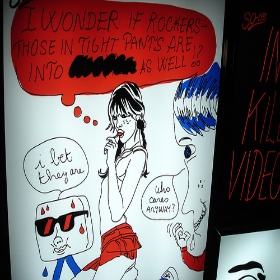 I WONDER IF ROCKERS-
THOSE IN TIGHT PANTS ARE!?
INTO AS WELL
i bet
they are
who
cares
ANYWAY?
KILL
VIDEO